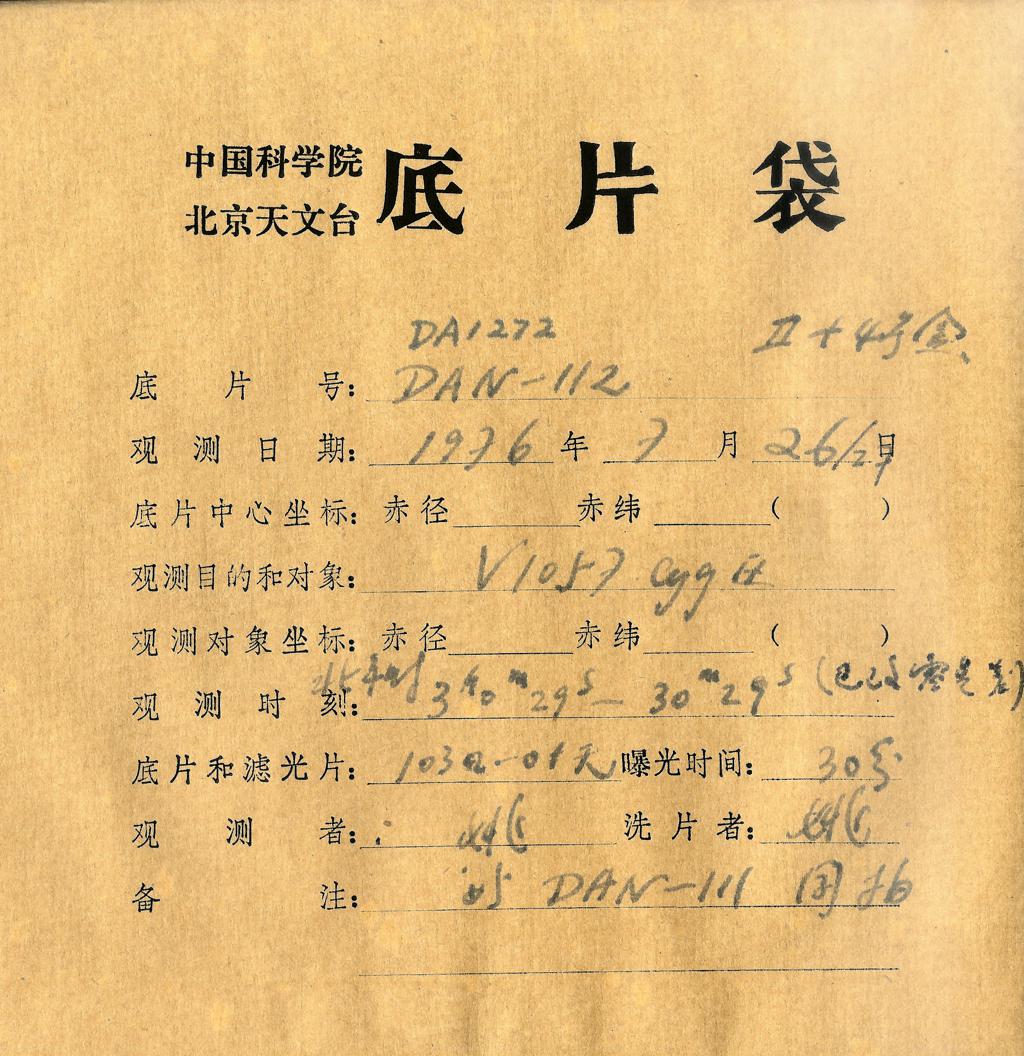 中国科学院
北京天文台
底片袋
DA1272 II+4号盒
底片号：DAN-112
观测日期：1976年7月26/27日
底片中心坐标：赤径 赤纬 （ ）
观测目的和对象：V1057 Cyg
观测对象坐标：赤径 赤纬 （ ）
观测时刻：北京时 3h0m29s — 30m29s （已改零差）
底片和滤光片：103a-O+无 曝光时间：30分
观测者： 洗片者：
备注：与 DAN-111 同拍